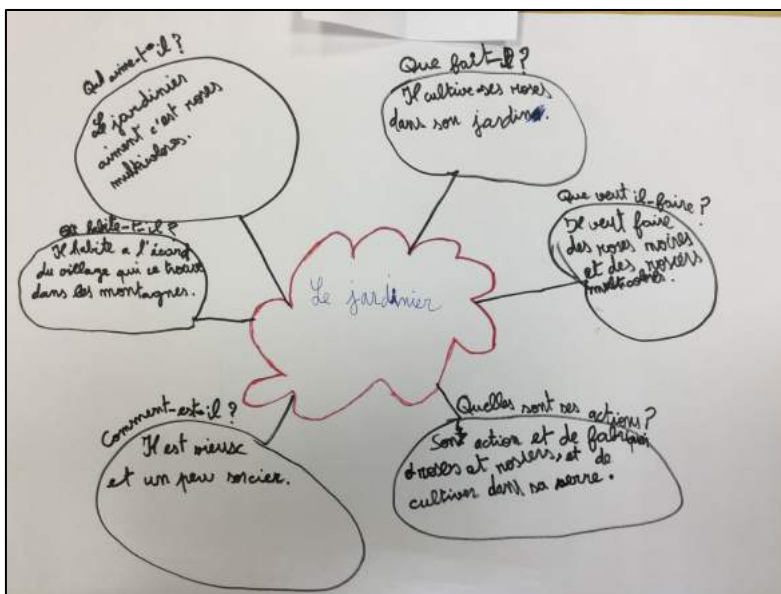 Qu'aime-t-il ?
Le jardinier
aiment c'est roses
multicolores.
Que fait-il ?
Il cultive ses roses
dans son jardin.
Où habite-t-il ?
Il habite a l'écart
du village qui ce trouve
dans les montagnes.
Que veut il-faire ?
Il veut faire
des roses noires
et des rosiers
multicolores.
Le jardinier
Comment-est-il ?
Il est vieux
et un peu sorcier.
Quelles sont ses actions ?
Sont action et de
roses et rosiers, et de
cultiver dans sa serre.